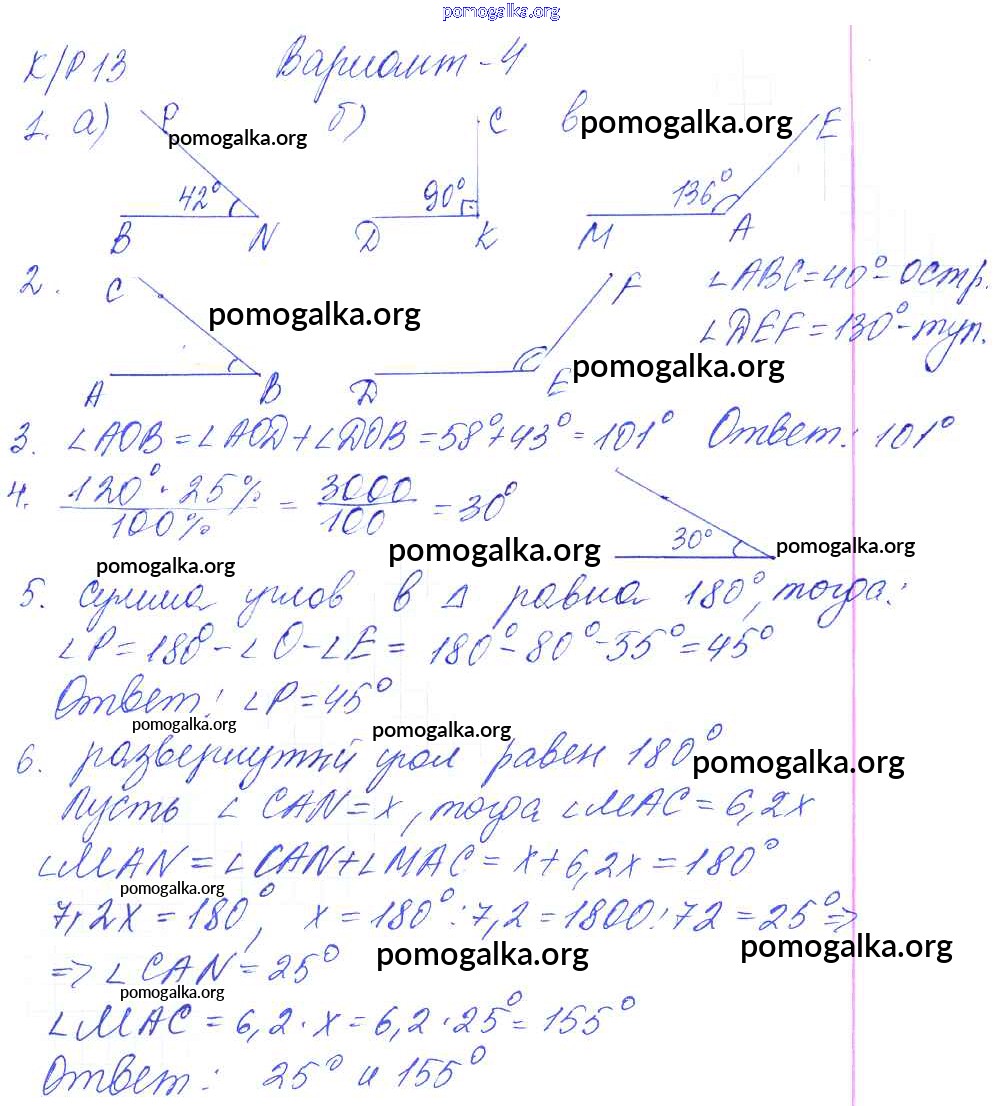 pomogalka.org
К/Р 13 Вариант - 4
1. а) P б) C в E
pomogalka.org pomogalka.org
42° 90° 136°
B N D K M A
2. C F ∠ABC = 40° - остр.
pomogalka.org ∠DEF = 130° - туп.
pomogalka.org
A B D E
3. ∠AOB = ∠AOD + ∠DOB = 58° + 43° = 101° Ответ: 101°
4. 120° · 25% / 100% = 3000 / 100 = 30° 30°
pomogalka.org pomogalka.org pomogalka.org
5. Сумма углов в Δ равна 180°, тогда:
∠P = 180° - ∠O - ∠E = 180° - 80° - 55° = 45°
Ответ: ∠P = 45°
pomogalka.org pomogalka.org
6. развернутый угол равен 180°
pomogalka.org
Пусть ∠CAN = x, тогда ∠MAC = 6,2x
∠MAN = ∠CAN + ∠MAC = x + 6,2x = 180°
pomogalka.org
7,2x = 180°, x = 180° : 7,2 = 1800 : 72 = 25° =>
pomogalka.org pomogalka.org
=> ∠CAN = 25°
pomogalka.org
∠MAC = 6,2 · x = 6,2 · 25° = 155°
Ответ: 25° и 155°